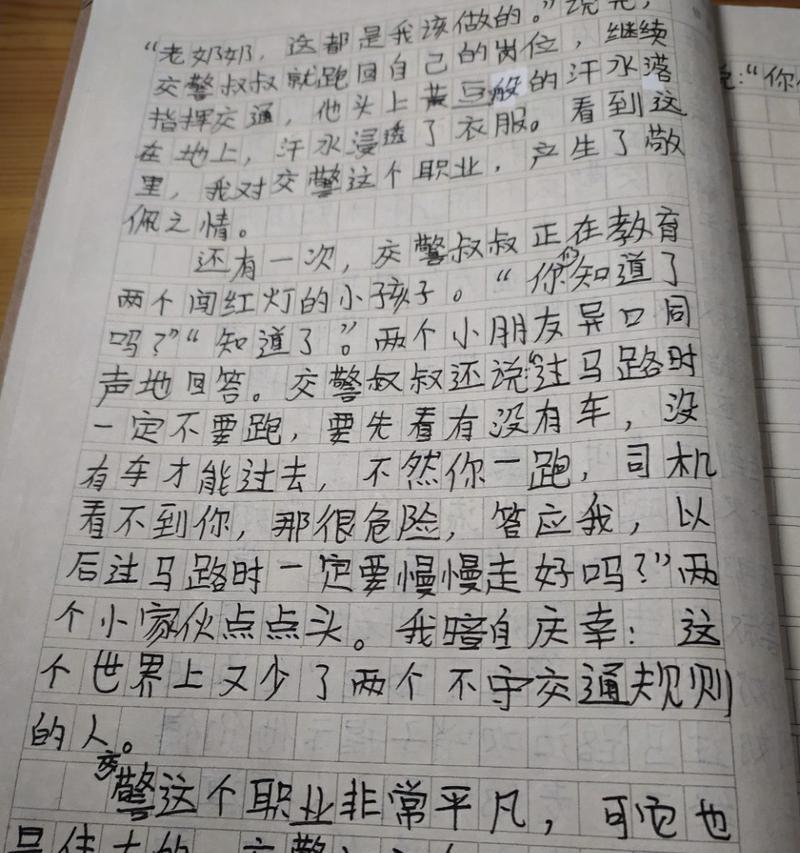 “老奶奶，这都是我该做的。”说完，
交警叔叔就跑回自己的岗位，继续
指挥交通，他头上黄豆般的汗水落
在地上，汗水浸透了衣服。看到这
里，我对交警这个职业，产生了敬
佩之情。
还有一次，交警叔叔正在教育
两个闯红灯的小孩子。“你们知道了
吗？”“知道了”。两个小朋友异口同
声地回答。交警叔叔还说“过马路时
一定不要跑，要先看有没有车，没
有车才能过去，不然你一跑，司机
看不到你，那很危险，答应我，以
后过马路时一定要慢慢走好吗？”两
个小家伙点点头。我暗自庆幸：这
个世界上又少了两个不守交通规则
的人。
交警这个职业非常平凡，可它也
是伟大的
：“你